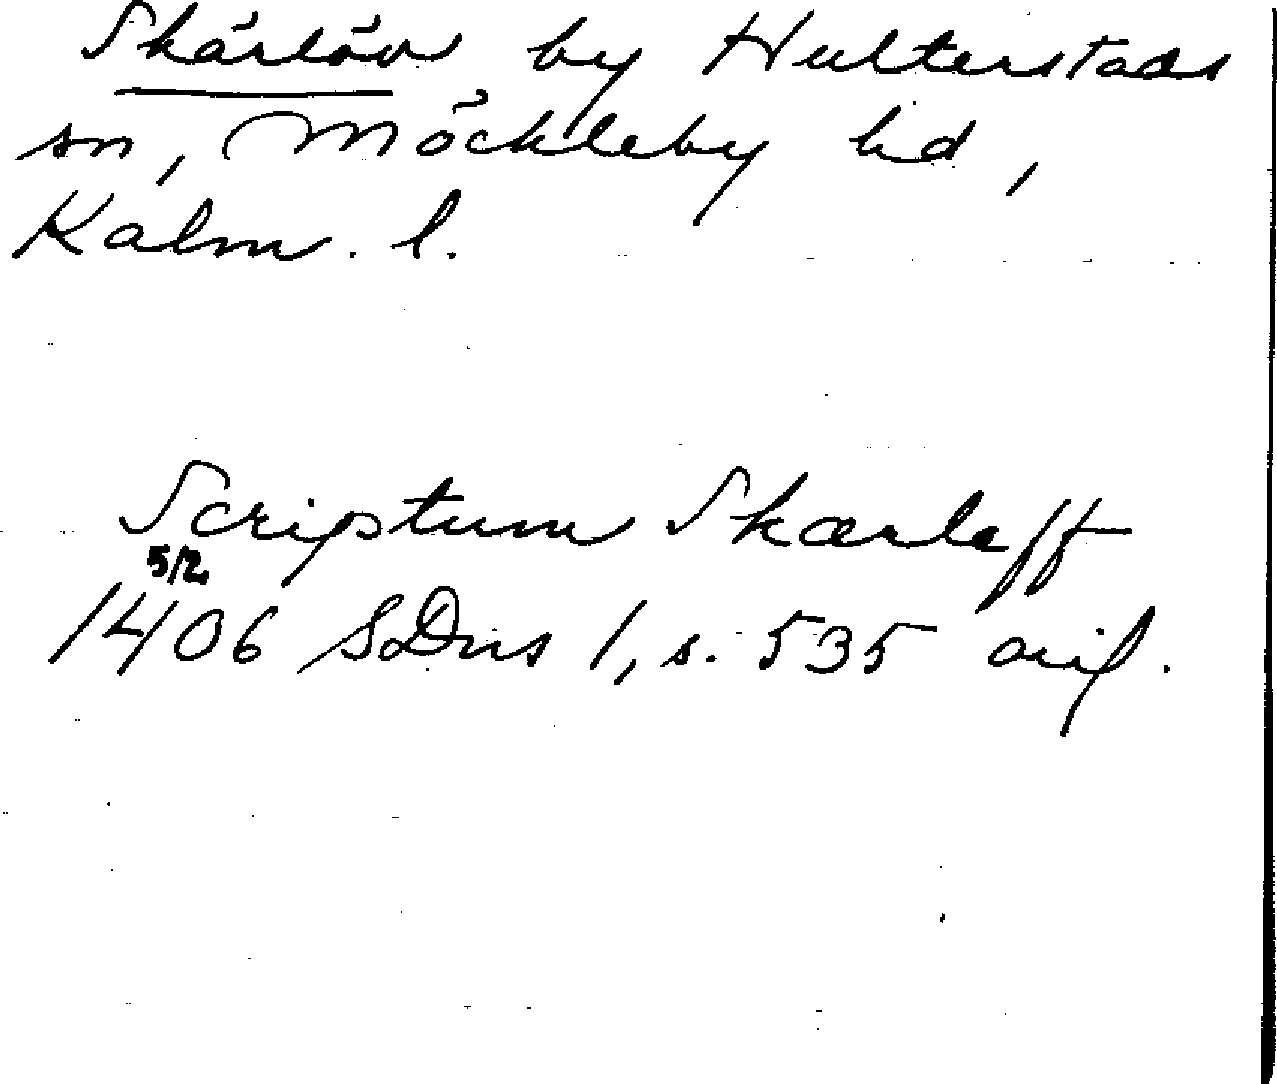 Skärlöv by Hulterstads
sn, Möckleby hd,
Kalm. l.
Scriptum Skærleff
5/2
1406 SDns 1, s. 535 orig.